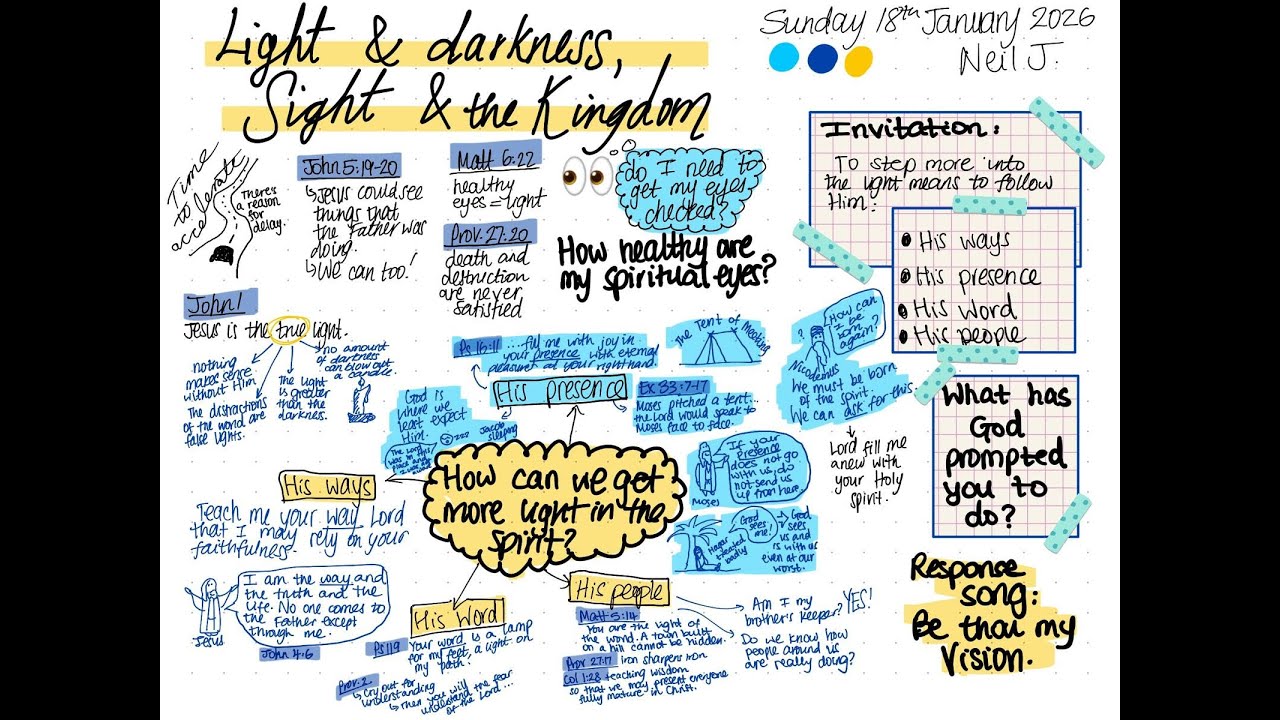 Light & darkness,
Sight & the Kingdom
Sunday 18th January 2026
Neil J.
Time
to
accelerate
There's
a reason
for
delay.
John 5:19-20
↳ Jesus could see
things that
the Father was
doing.
↳ We can too!
Matt 6:22
healthy
eyes = light
Prov. 27:20
death and
destruction
are never
satisfied
do I need to
get my eyes
checked?
How healthy are
my spiritual eyes?
Invitation:
To step more into
the light means to follow
Him:
• His ways
• His presence
• His word
• His people
John 1
Jesus is the true light.
nothing
makes sense
without Him
The distractions
of the world are
false lights.
The light
is greater
than the
darkness.
no amount
of darkness
can blow out
a candle.
Ps 16:11
...fill me with joy in
your presence with eternal
pleasure at your right hand.
The Tent of Meeting
?
How can
I be
born
again?
Nicodemus
We must be born
of the spirit.
We can ask for this.
Lord fill me
anew with
your Holy
Spirit.
His presence
Ex 33:7-17
Moses pitched a tent...
the Lord would speak to
Moses face to face.
God is
where we
least expect
Him.
Jacob
sleeping
zzz
The Lord
was in this
place and
If your
presence
does not go
with us, do
not send us
up from here.
Moses
God
sees
me!
Hagar
treated
badly
God
sees
us and
is with us
even at our
worst.
How can we get
more light in the
spirit?
His ways
Teach me your way Lord
that I may rely on your
faithfulness.
I am the way and
the truth and the
life. No one comes to
the Father except
through me.
Jesus
John 4:6
His Word
Ps 119
Your word is a lamp
for my feet, a light on
my path.
Prov. 2
↳ Cry out for
understanding
↳ then you will
understand the fear
of the Lord...
His people
Matt 5:14
You are the light of
the world. A town built
on a hill cannot be hidden.
Prov 27:17 iron sharpens iron
Col 1:28 teaching wisdom
so that we may present everyone
fully mature in Christ.
Am I my
brother's keeper? YES!
Do we know how
people around us
are really doing?
What has
God
prompted
you to
do?
Response
song:
Be thou my
Vision.